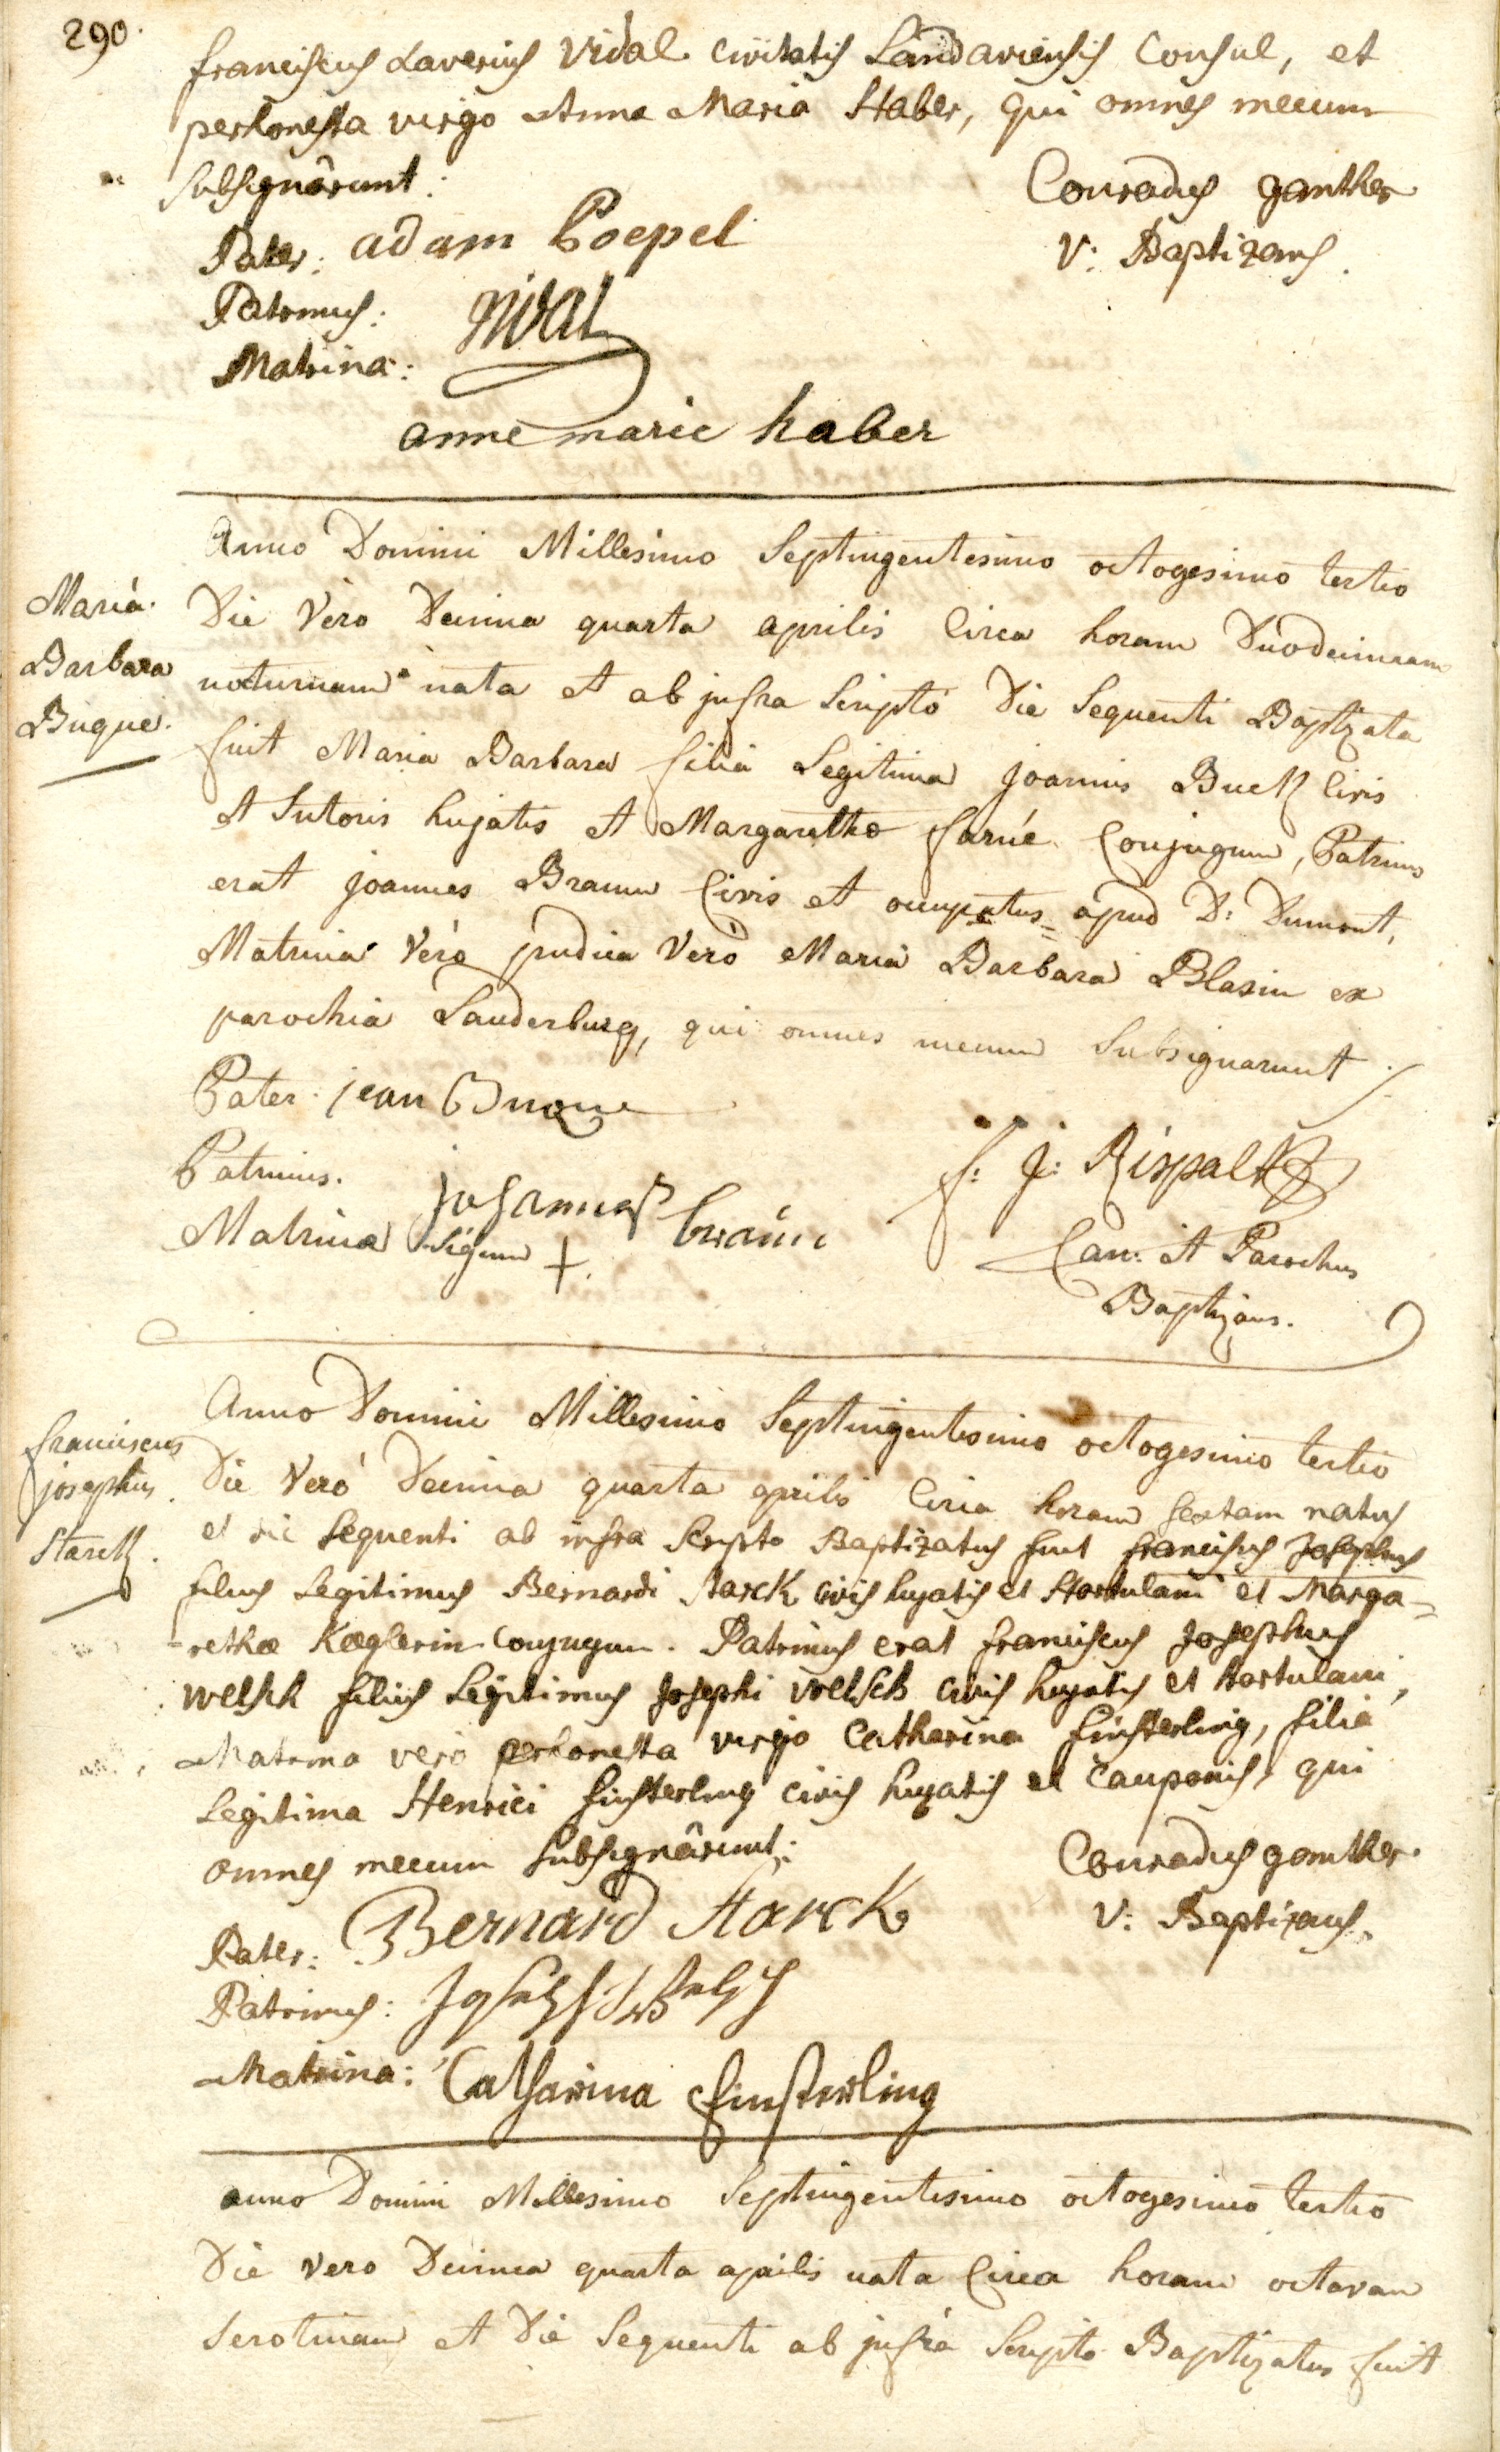 290.
Franciscus Xaverius Vidal civitatis Landaviensis Consul, et
perhonesta virgo Anna Maria Haber, qui omnes mecum
subsignârunt:
Conradus Ganther
V: Baptizans.
Pater: adam Poepel
Patrinus: Vidal
Matrina:
anne marie haber
Maria
Barbara
Buque.
Anno Domini Millesimo Septingentesimo octogesimo tertio
Die Vero Decima quarta aprilis Circa horam Duodecimam
nocturnam nata et ab jnfra Scripto Die Sequenti Baptizata
fuit Maria Barbara filia Legitima Joannis Buck Civis
et Sutoris hujatis et Margarethæ Conjugum, Patrinus
erat Joannes Braun Civis et occupatus apud D: Dumont,
Matrina Verò pudica Verò Maria Barbara Blasin ex
parochia Lauderburg, qui omnes mecum Subsignarunt
Pater. jean Buque
Patrinus. johannes braun
Matrina Signum +.
f: J: Rispalt
Can: et Parochus
Baptizans.
franciscus
josephus
Starck.
Anno Domini Millesimo Septingentesimo octogesimo tertio
Die Verò Decima quarta aprilis Circa horam sextam natus
et die sequenti ab infra scripto Baptizatus fuit franciscus Josephus
filius Legitimus Bernardi Starck civis hujatis et Hortulani et Marga=
=rethæ Kæglerin Conjugum. Patrinus erat franciscus Josephus
Welsch filius Legitimus Josephi Welsch civis hujatis et Hortulani,
Matrina verò perhonesta virgo Catharina finsterling, filia
Legitima Henrici finsterling civis hujatis et Cauponis, qui
omnes mecum subsignârunt:
Conradus Ganther.
V: Baptizans.
Pater: Bernard Starck
Patrinus: Joseph Welsch
Matrina: Catharina Finsterling
anno Domini Millesimo Septingentesimo octogesimo tertio
Die vero Decima quarta aprilis nata Circa horam octavam
Serotinam et Die Sequenti ab jnfra Scripto Baptizatus fuit